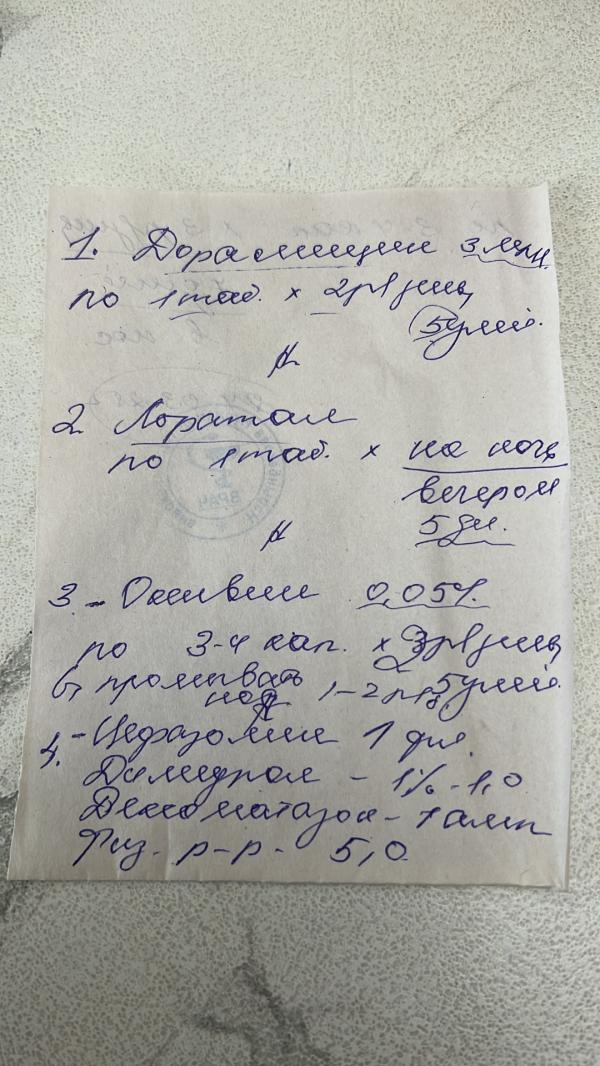 1. Дорамицин 3 млн.
по 1 таб. x 2 р/день
5 дней.
#
2. Лоратал
по 1 таб. x на ночь
вечером
5 дн.
#
3. - Окивин 0,05%
по 3-4 кап. x 3 р/день
промывать 5 дней.
нос 1-2 р/д
4. - Цефазолин 1 фл.
Димедрол - 1% - 1,0
Дексаметазон - 1 амп
Физ. р-р - 5,0
ВРАЧ